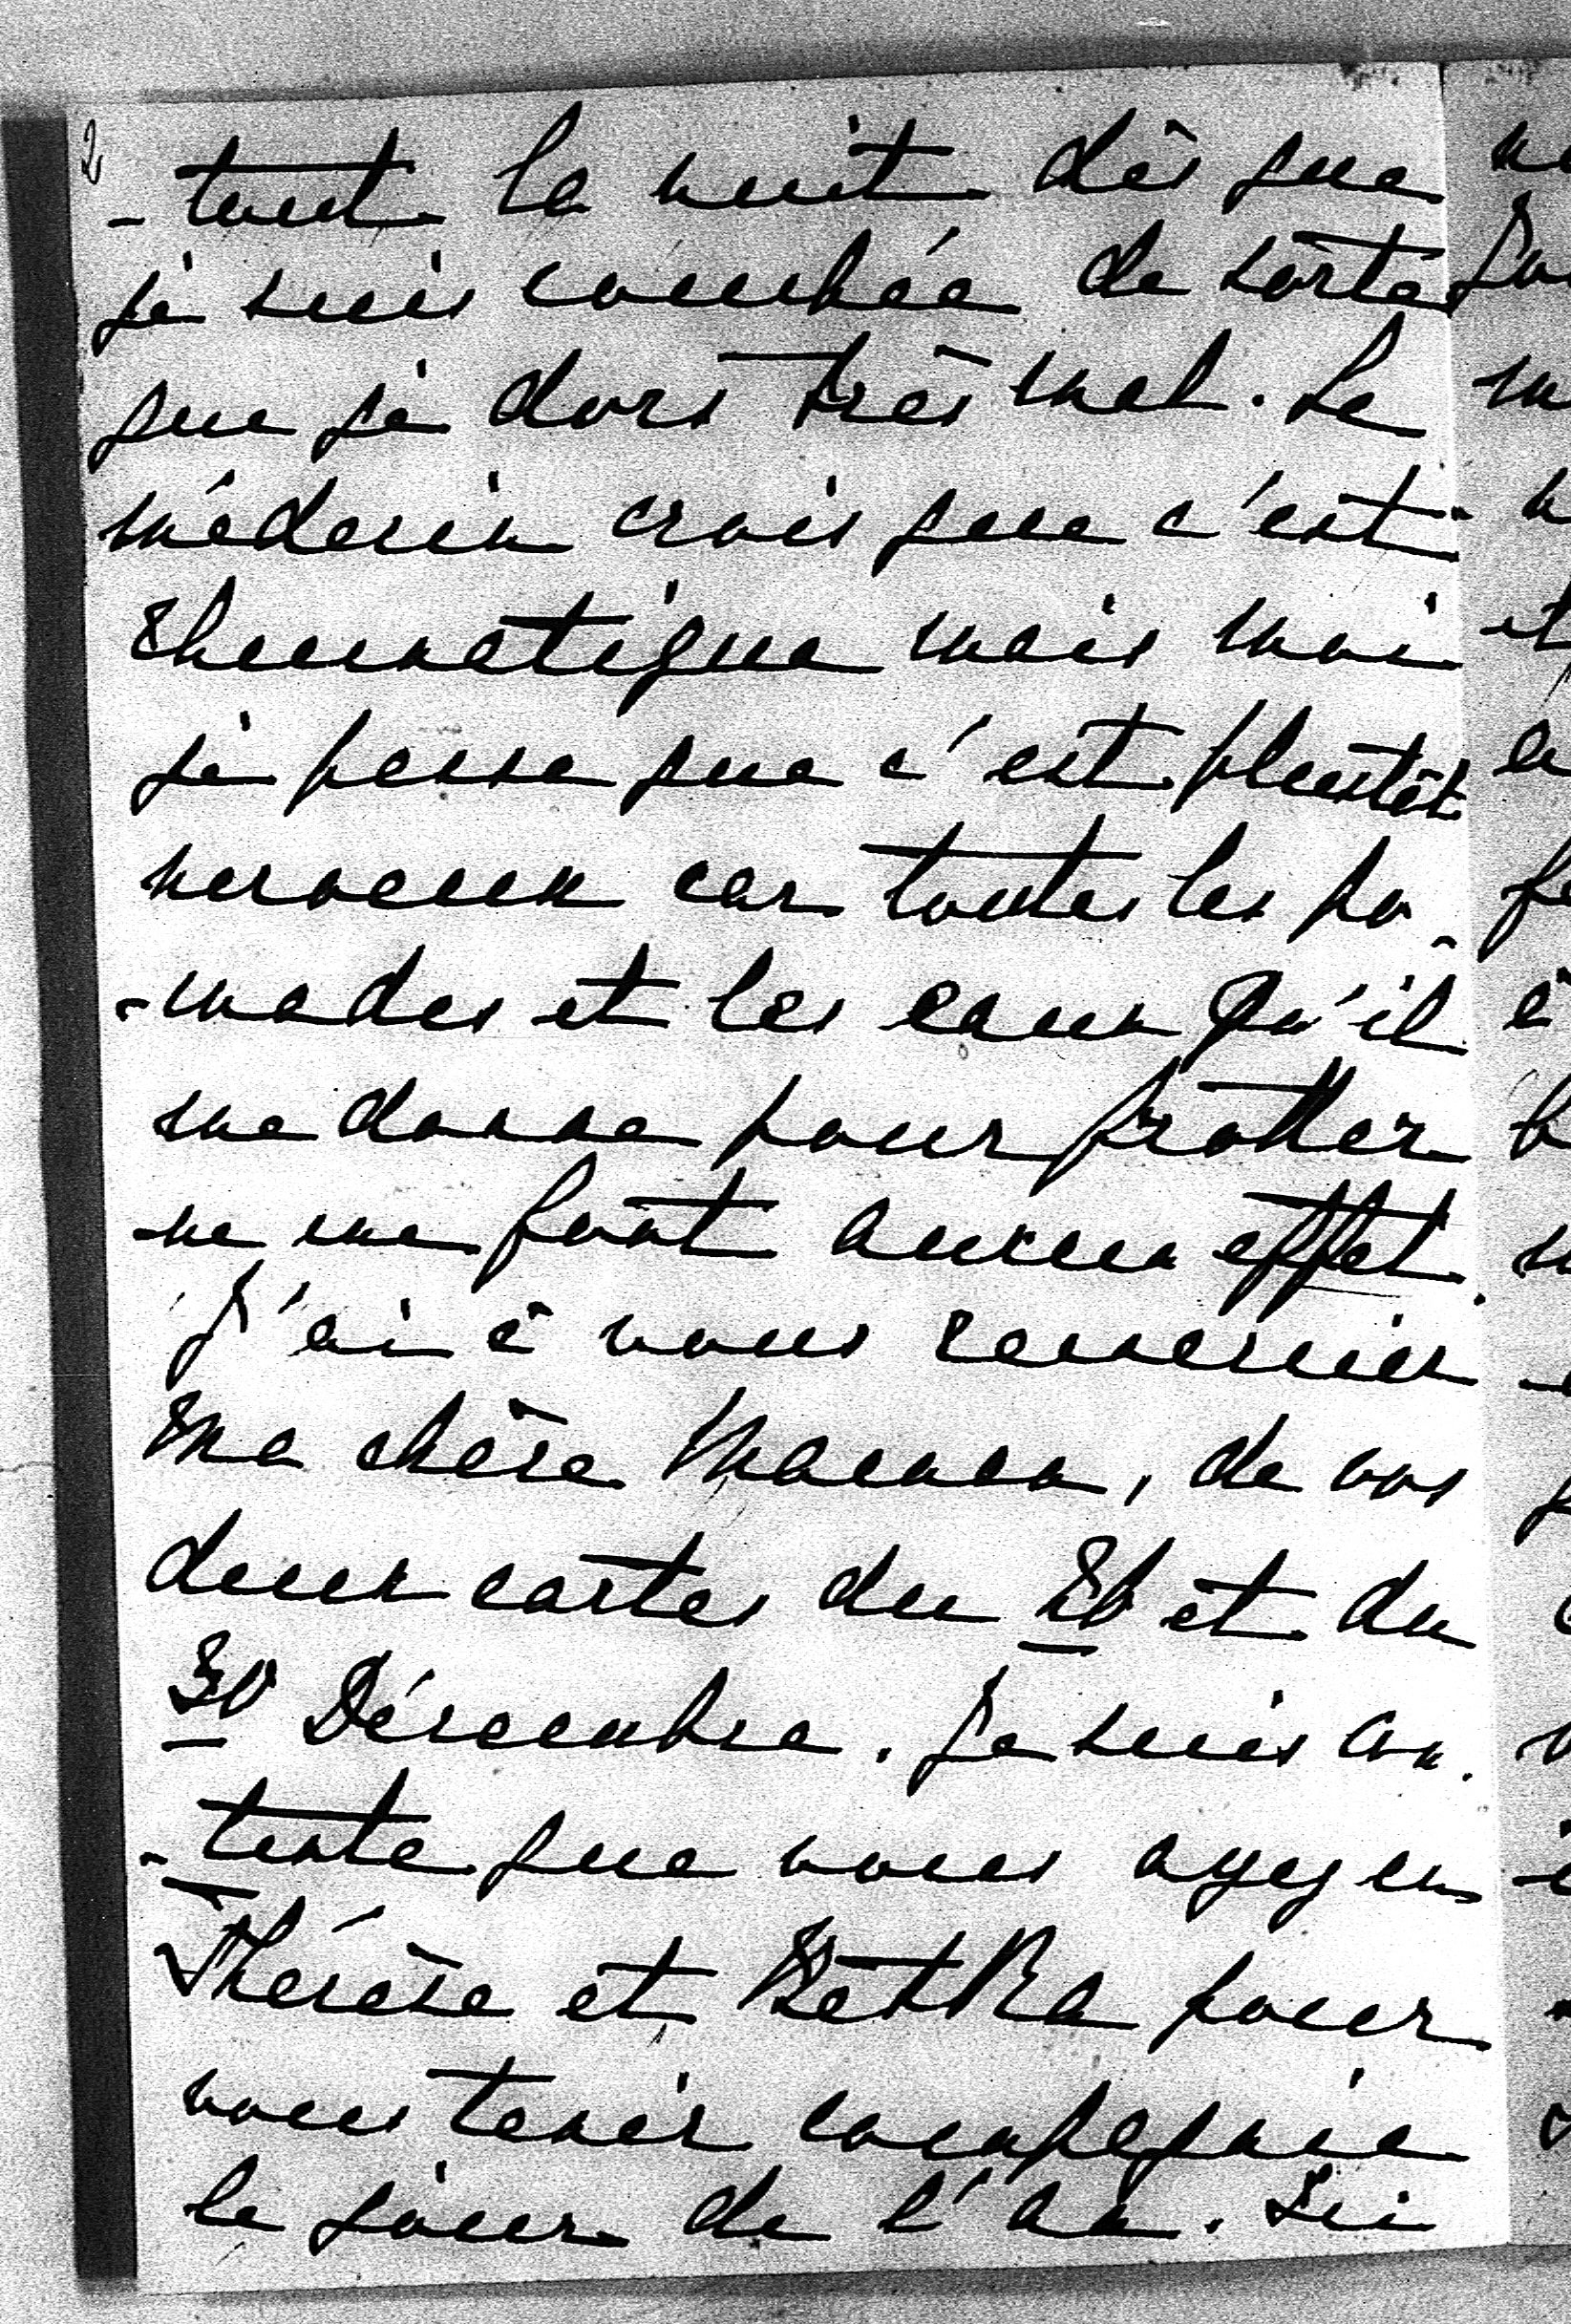 2
- tout la nuit dès que
je suis couchée de sorte
que je dors très mal. Le
médecin crois que c'est
rhumatique mais moi
je pense que c'est plustôt
nerveux car toutes les po-
-mades et les eaux qu'il
me donne pour frotter
ne me font aucun effet.
J'ai à vous remercier
Ma chère Maman, de vos
deux cartes du 26 et du
30 Décembre. Je suis con-
-tente que vous ayez eu
Thérèse et Betka pour
vous tenir compagnie
le jour de l'an. Ici